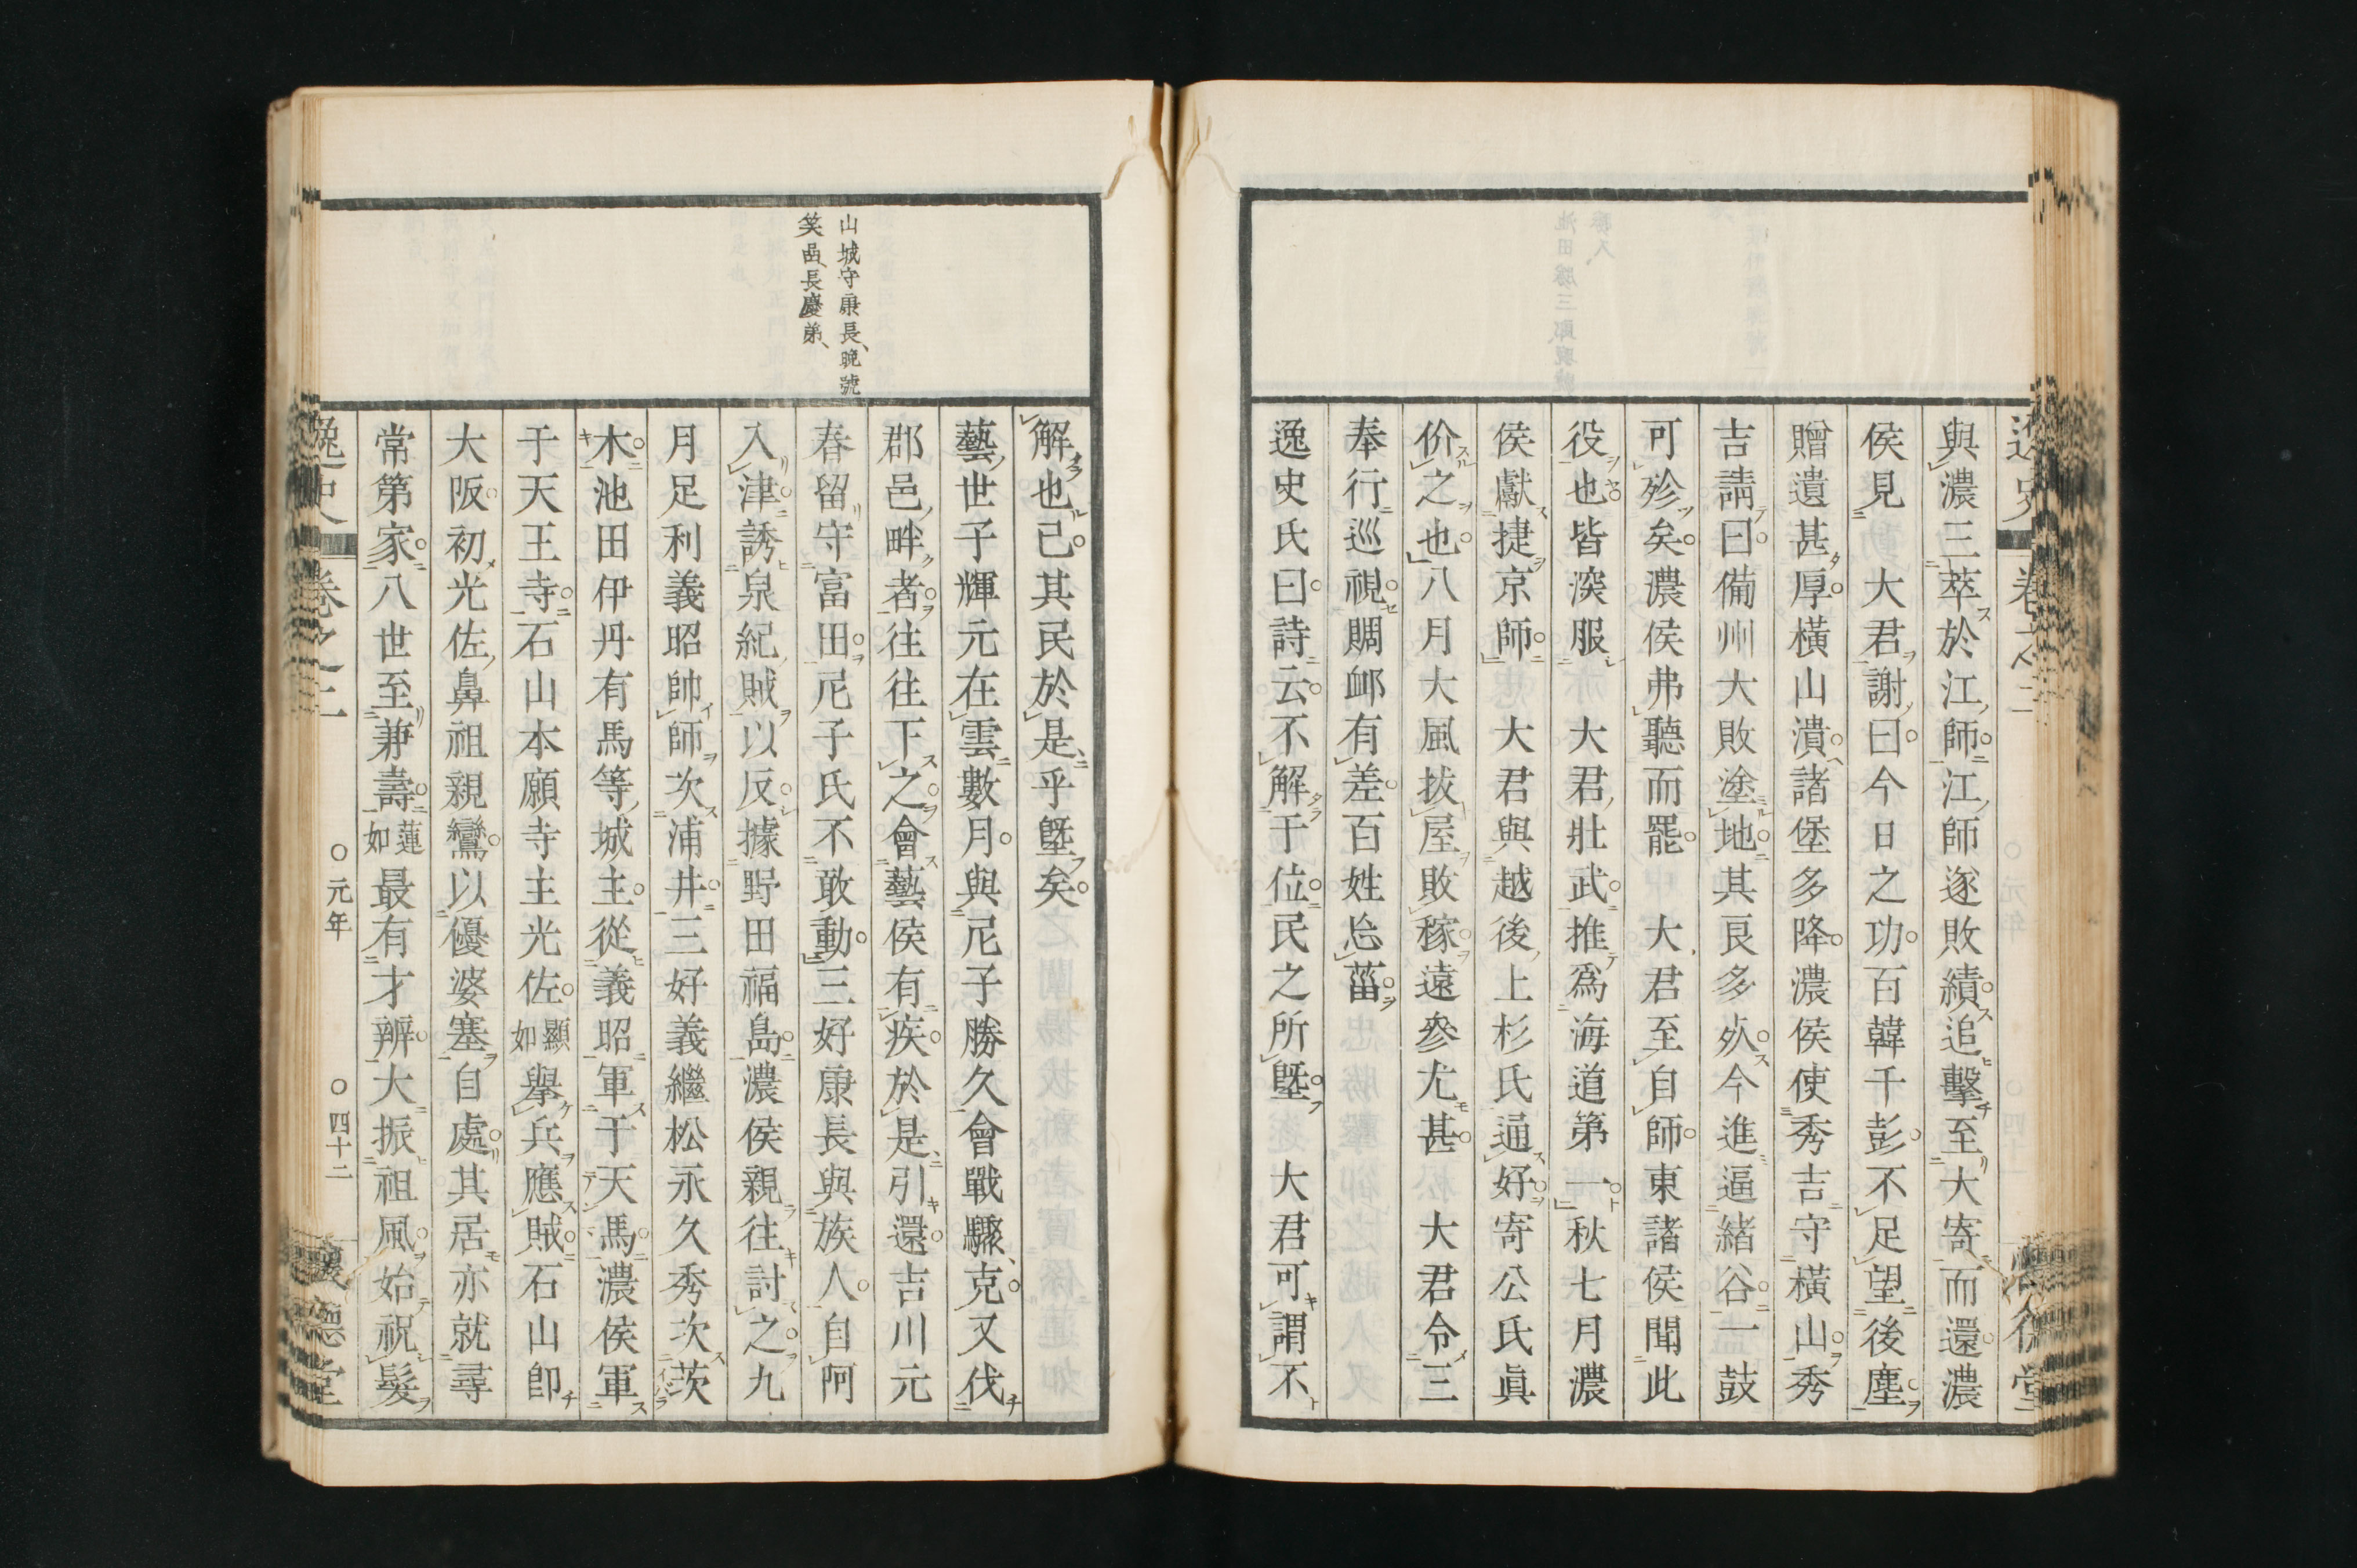 與濃三萃於江師江師遂敗績追擊至大寄而還濃
侯見　大君謝曰今日之功百韓千彭不足望後塵
贈遺甚厚橫山潰諸堡多降濃侯使秀吉守橫山秀
吉請曰備州大敗塗地其良多死今進逼緒谷一鼓
可殄矣濃侯弗聽而罷　大君至自師東諸侯聞此
役也皆深服　大君壯武推爲海道第一秋七月濃
侯獻捷京師　大君與越後上杉氏通好寄公氏眞
价之也八月大風拔屋敗稼遠參尤甚　大君令三
奉行巡視賙邮有差百姓忘菑
逸史氏曰詩云不解于位民之所墍　大君可謂不
山城守康長、晚號
笑嵒、長慶弟、
解也已其民於是乎墍矣
藝世子輝元在雲數月與尼子勝久會戰驟克又伐
郡邑畔者往往下之會藝侯有疾於是引還吉川元
春留守富田尼子氏不敢動三好康長與族人自阿
入津誘泉紀賊以反據野田福島濃侯親往討之九
月足利義昭帥師次浦井三好義繼松永久秀次茨
木池田伊丹有馬等城主從義昭軍于天馬濃侯軍
于天王寺石山本願寺主光佐顯如擧兵應賊石山卽
大阪初光佐鼻祖親鸞以優婆塞自處其居亦就尋
常第家八世至兼壽蓮如最有才辨大振祖風始祝髮
逸史　卷之二　○元年　○四十二　懷德堂